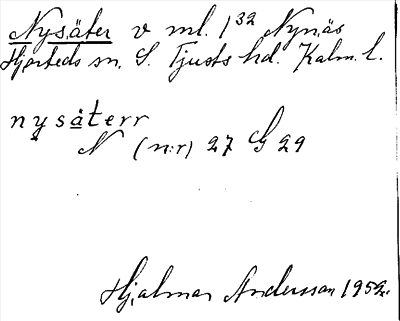 Nysäter v ml. 1³² Nynäs
Hjorteds sn. S. Tjusts hd. Kalm. l.
nysäterr
N (n:r) 27 G 29
Hjalmar Andersson 1952.